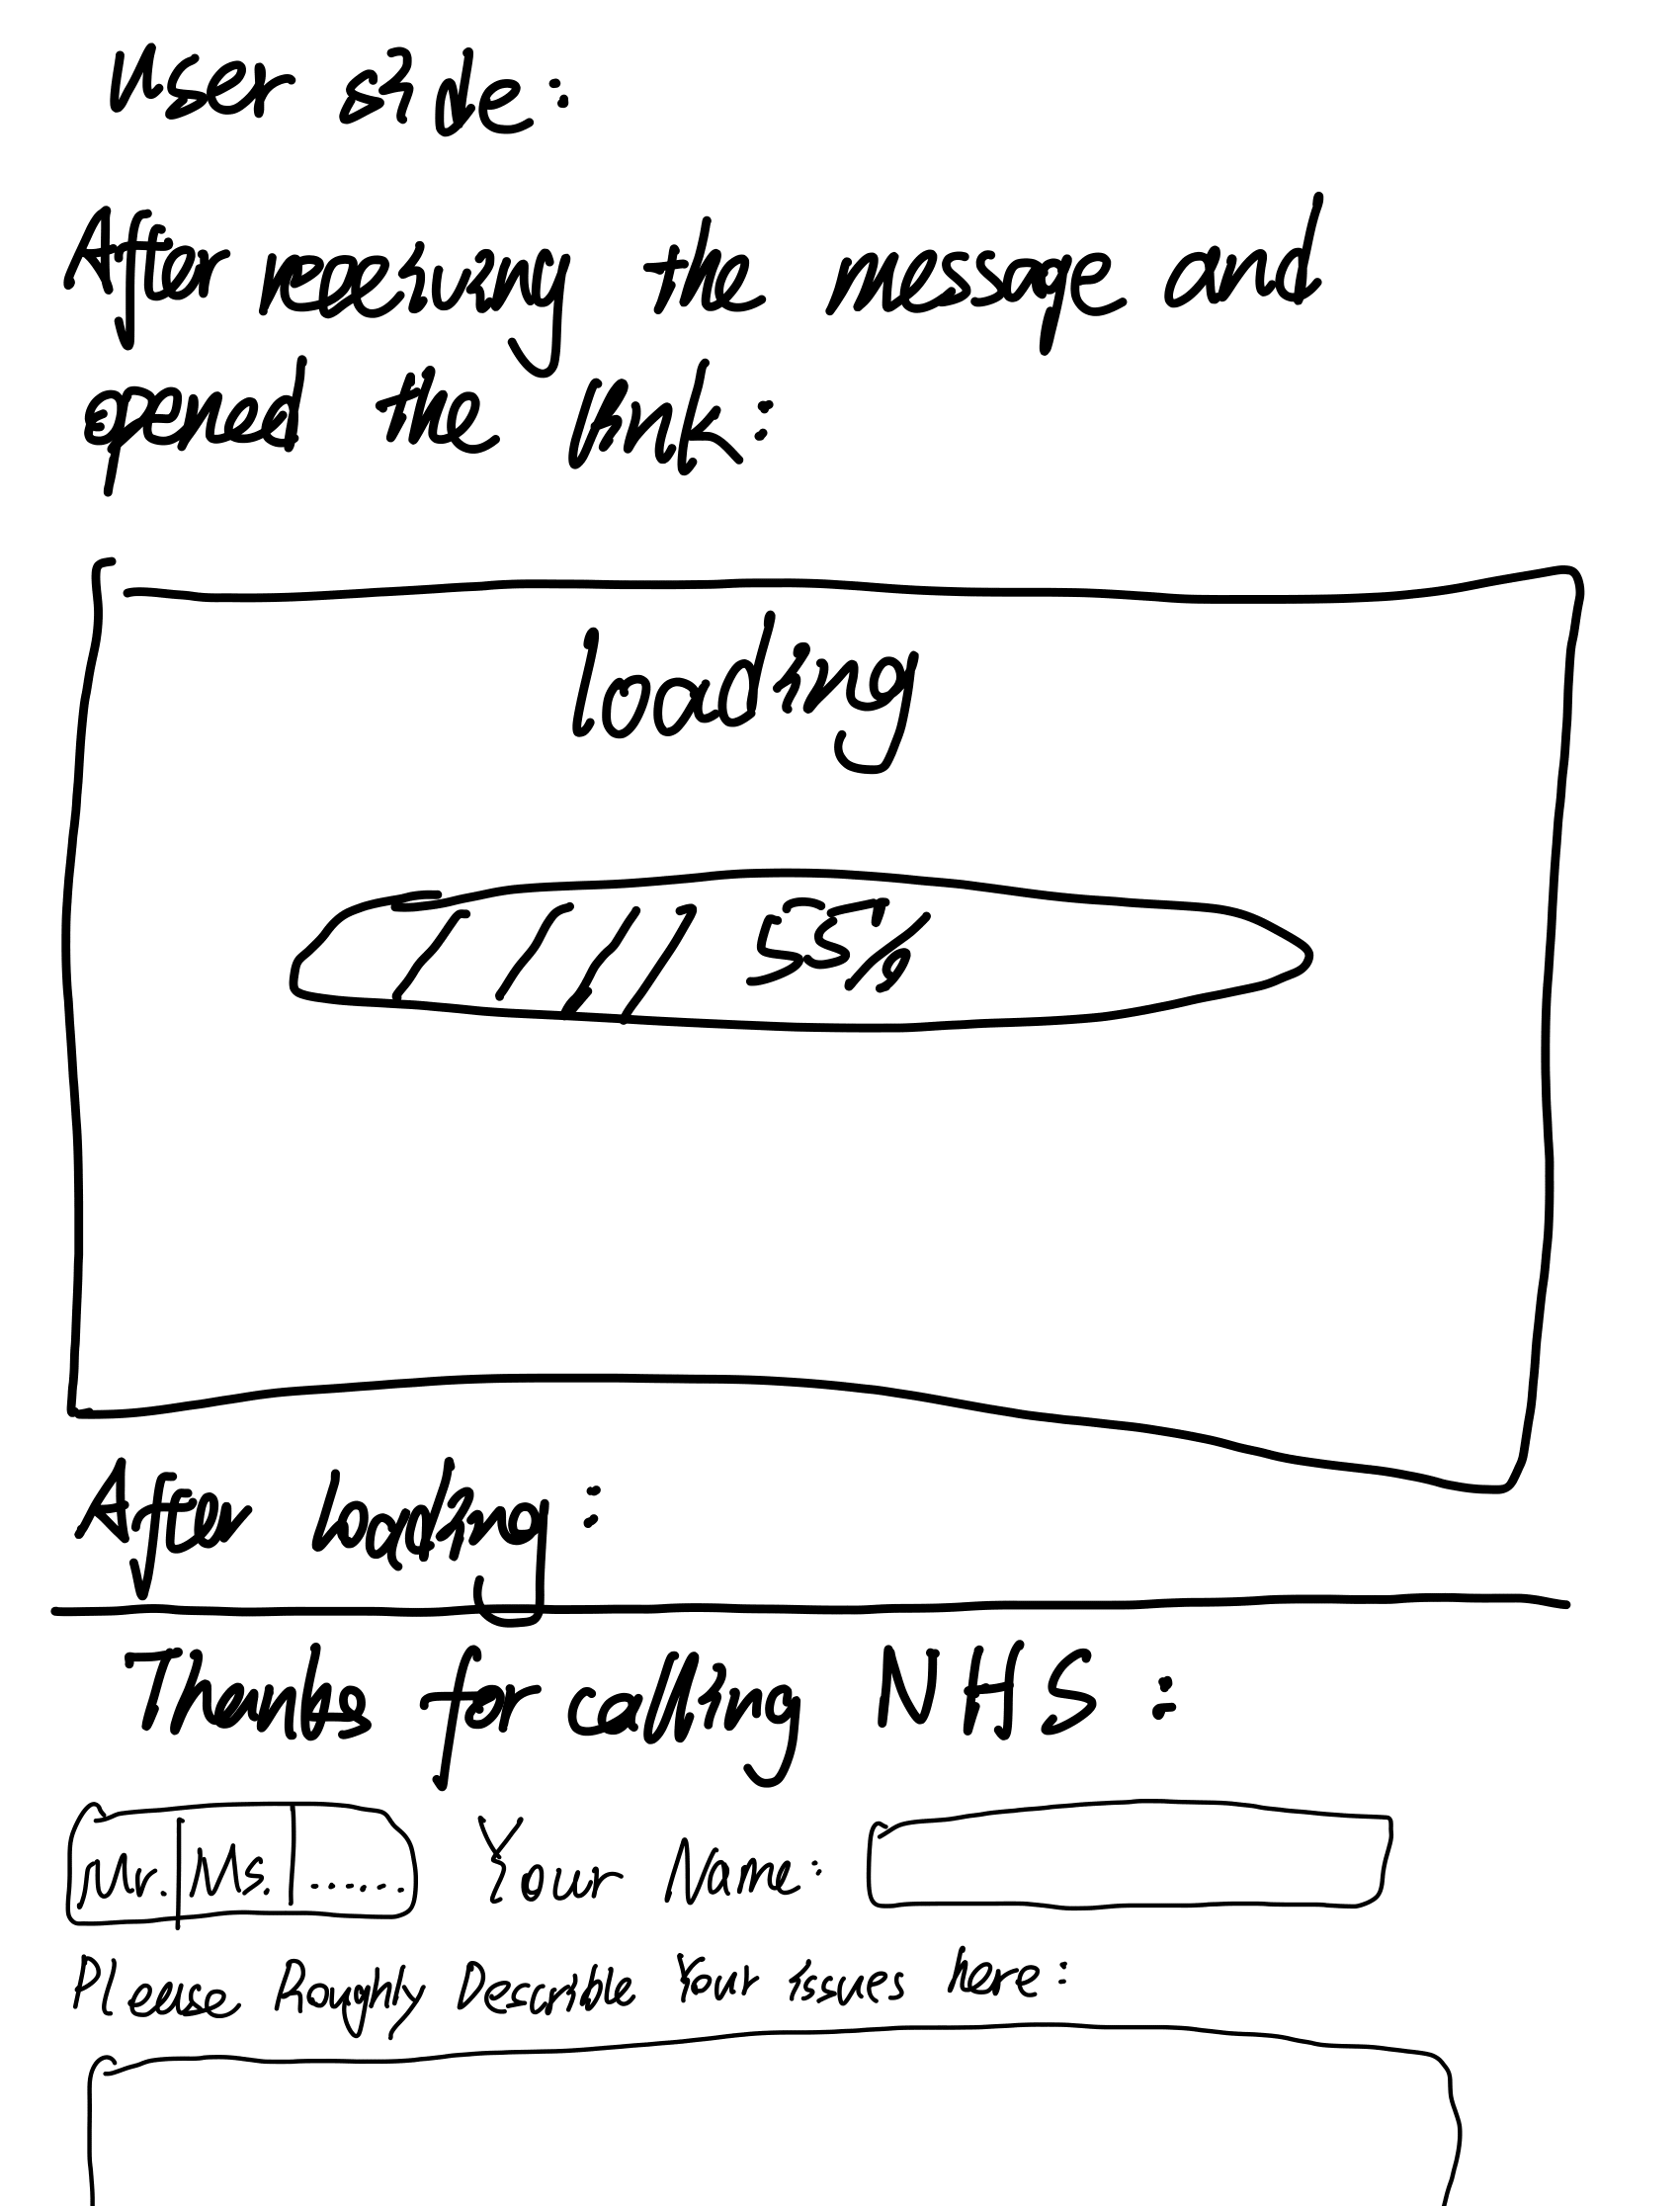 User side:
After receiving the message and
opened the link:
loading
55%
After loading:
Thanks for calling NHS:
Mr. Ms. ...... Your Name:
Please Roughly Describle Your issues here: